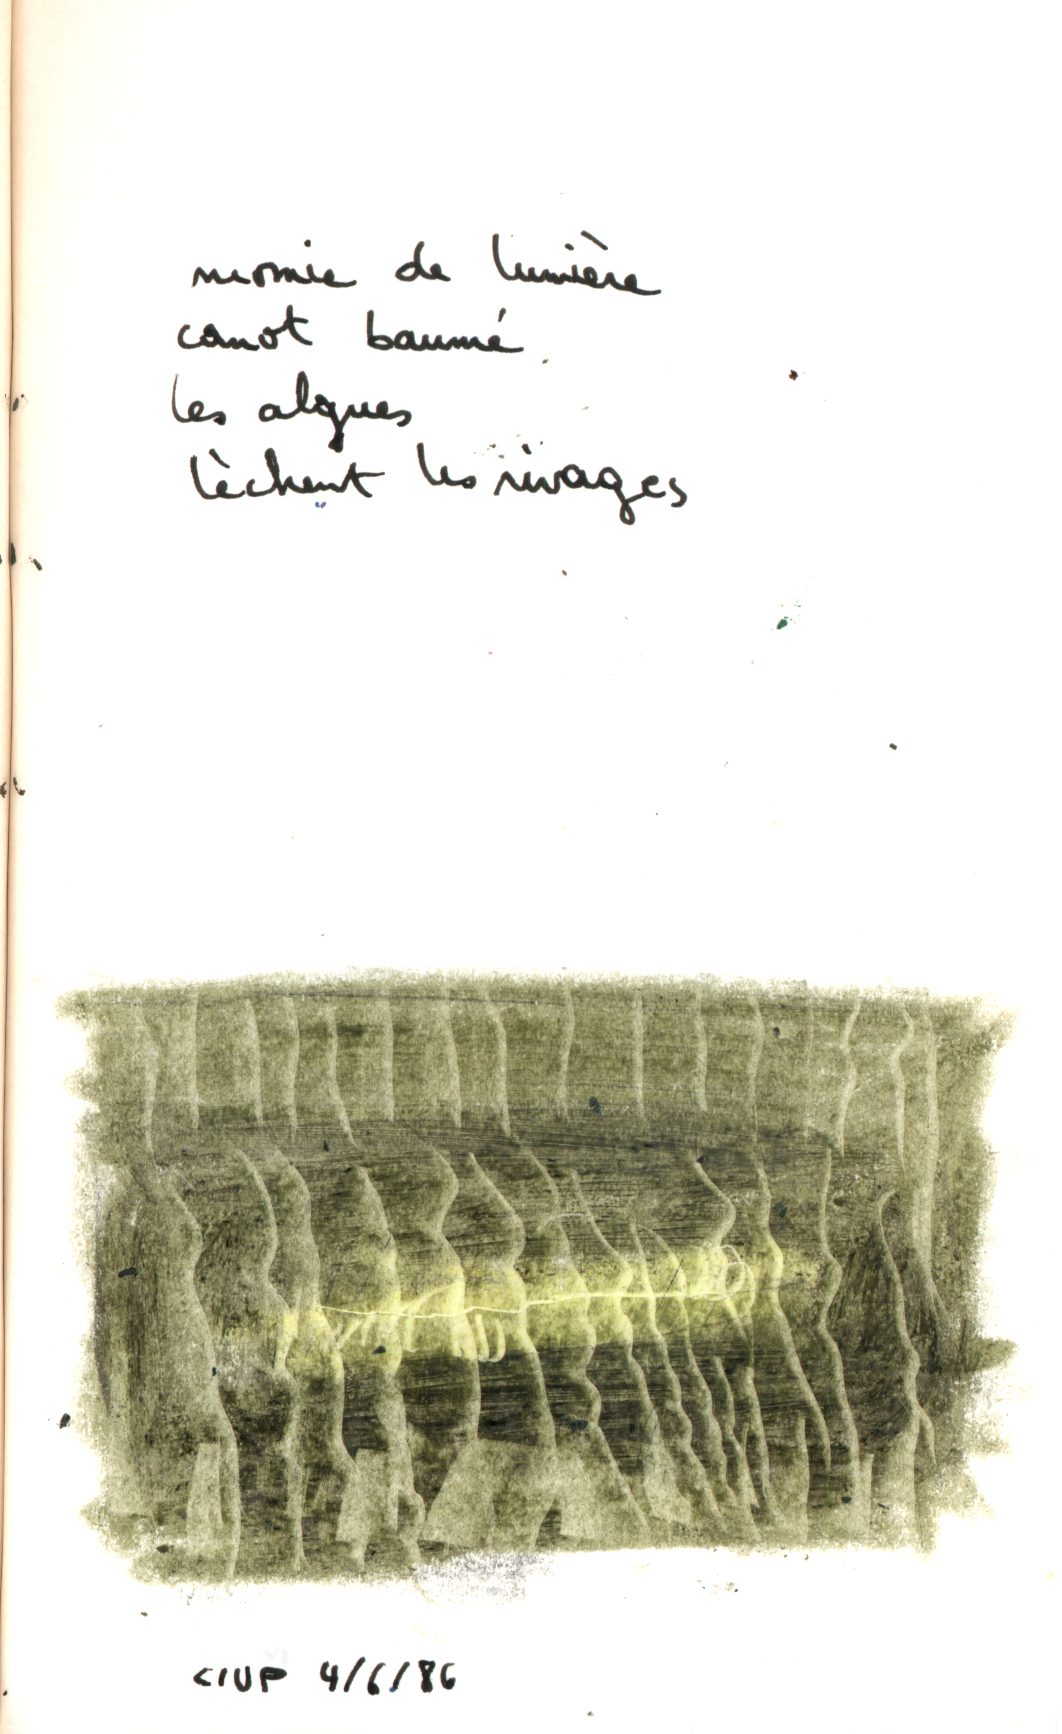 momie de lumière
canot baumé
les algues
lèchent les rivages
CIUP 4/6/86